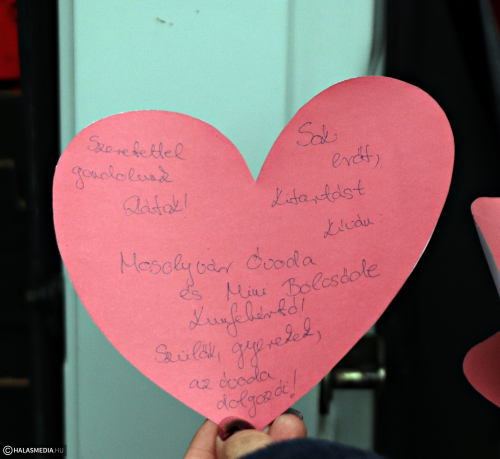 Szeretettel
gondolunk
Rátok!
Sok
erőt,
Kitartást
Kíván:
Mosolyvár Óvoda
és Mini Bölcsőde
Kunfehértó!
Szülők, gyerekek,
az óvoda
dolgozói!
© HALASMEDIA.HU